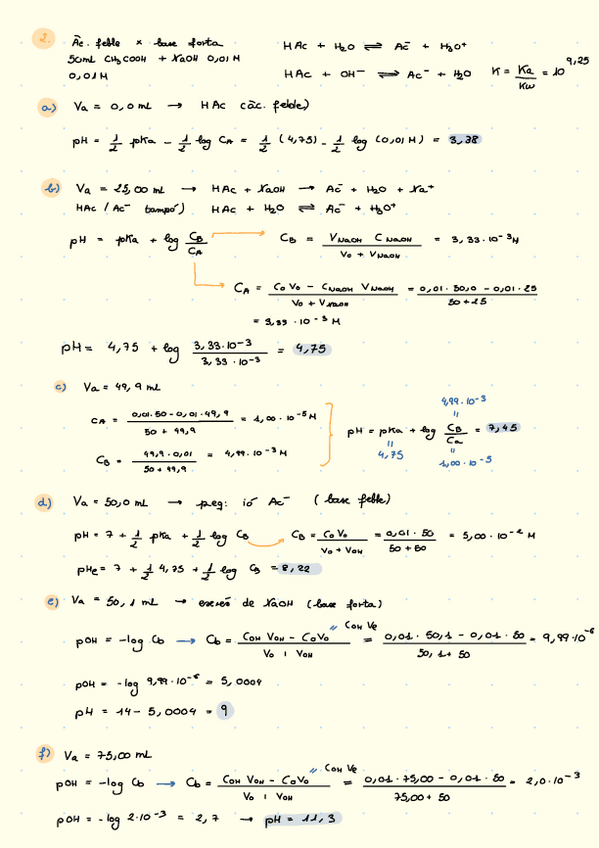 2. Àc. feble × base forta HAc + H₂O ⇌ Ac⁻ + H₃O⁺
50mL CH₃COOH + NaOH 0,01 M
0,01 M HAc + OH⁻ ⇌ Ac⁻ + H₂O K = Ka/Kw = 10^9,25
a) Va = 0,0 mL → HAc (àc. feble)
pH = 1/2 pKa - 1/2 log CA = 1/2 (4,75) - 1/2 log (0,01 M) = 3,38
b) Va = 25,00 mL → HAc + NaOH → Ac⁻ + H₂O + Na⁺
HAc / Ac⁻ tampó) HAc + H₂O ⇌ Ac⁻ + H₃O⁺
pH = pKa + log CB/CA → CB = VNaOH CNaOH / V0 + VNaOH = 3,33·10⁻³M
CA = C0V0 - CNaOH VNaOH / V0 + VNaOH = 0,01·50,0 - 0,01·25 / 50+25
= 3,33·10⁻³ M
pH = 4,75 + log 3,33·10⁻³ / 3,33·10⁻³ = 4,75
c) Va = 49,9 mL
CA = 0,01·50 - 0,01·49,9 / 50 + 49,9 = 1,00·10⁻⁵ M
CB = 49,9·0,01 / 50 + 49,9 = 4,99·10⁻³ M
4,99·10⁻³
=
pH = pKa + log CB/Ca = 7,45
= =
4,75 1,00·10⁻⁵
d) Va = 50,0 mL → p.eq: ió Ac⁻ (base feble)
pH = 7 + 1/2 pKa + 1/2 log CB → CB = C0V0 / V0 + VOH = 0,01·50 / 50 + 50 = 5,00·10⁻² M
pHe = 7 + 1/2 4,75 + 1/2 log CB = 8,22
e) Va = 50,1 mL → excés de NaOH (base forta)
= COH Ve
pOH = -log Cb → Cb = COH VOH - C0V0 / V0 + VOH = 0,01·50,1 - 0,01·50 / 50,1 + 50 = 9,99·10⁻⁶
pOH = -log 9,99·10⁻⁶ = 5,0004
pH = 14 - 5,0004 = 9
f) Va = 75,00 mL
= COH Ve
pOH = -log Cb → Cb = COH VOH - C0V0 / V0 + VOH = 0,01·75,00 - 0,01·50 / 75,00 + 50 = 2,0·10⁻³
pOH = -log 2·10⁻³ = 2,7 → pH = 11,3